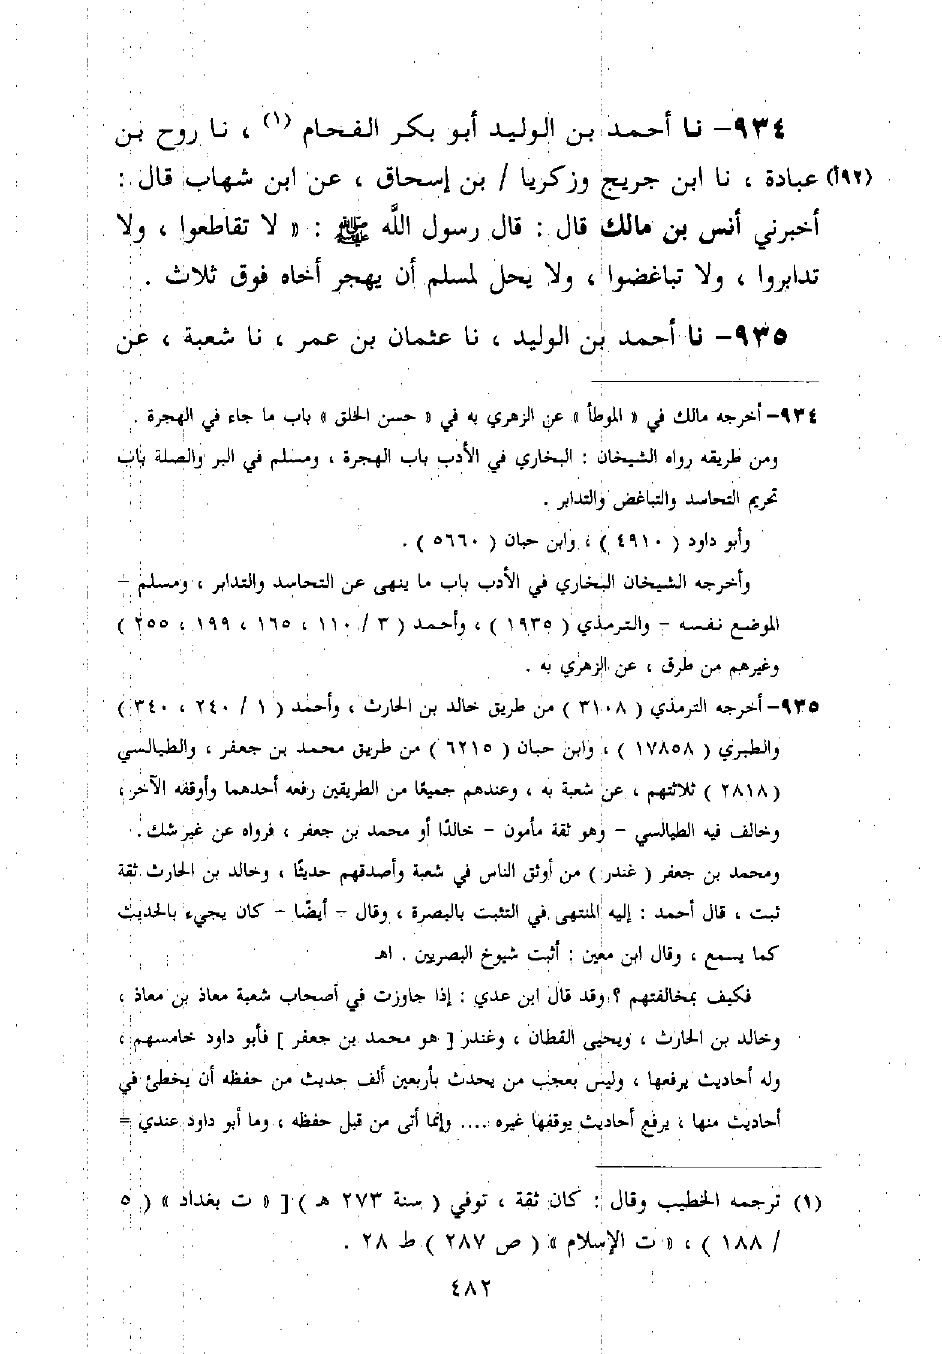 ٩٣٤- نا أحمد بن الوليد أبو بكر الفحام (١) ، نا روح بن
(٩٢/أ) عبادة ، نا ابن جريج وزكريا / بن إسحاق ، عن ابن شهاب قال :
أخبرني أنس بن مالك قال : قال رسول الله ﷺ : « لا تقاطعوا ، ولا
تدابروا ، ولا تباغضوا ، ولا يحل لمسلم أن يهجر أخاه فوق ثلاث .
٩٣٥- نا أحمد بن الوليد ، نا عثمان بن عمر ، نا شعبة ، عن
٩٣٤- أخرجه مالك في « الموطأ » عن الزهري به في « حسن الخلق » باب ما جاء في الهجرة .
ومن طريقه رواه الشيخان : البخاري في الأدب باب الهجرة ، ومسلم في البر والصلة باب
تحريم التحاسد والتباغض والتدابر .
وأبو داود ( ٤٩١٠ ) ، وابن حبان ( ٥٦٦٠ ) .
وأخرجه الشيخان البخاري في الأدب باب ما ينهى عن التحاسد والتدابر ، ومسلم –
الموضع نفسه – والترمذي ( ١٩٣٥ ) ، وأحمد ( ٣ / ١١٠ ، ١٦٥ ، ١٩٩ ، ٢٥٥ )
وغيرهم من طرق ، عن الزهري به .
٩٣٥- أخرجه الترمذي ( ٣١٠٨ ) من طريق خالد بن الحارث ، وأحمد ( ١ / ٢٤٠ ، ٣٤٠ )
والطبري ( ١٧٨٥٨ ) ، وابن حبان ( ٦٢١٥ ) من طريق محمد بن جعفر ، والطيالسي
( ٢٨١٨ ) ثلاثتهم ، عن شعبة به ، وعندهم جميعًا من الطريقين رفعه أحدهما وأوقفه الآخر ،
وخالف فيه الطيالسي – وهو ثقة مأمون – خالدًا أو محمد بن جعفر ، فرواه عن غير شك .
ومحمد بن جعفر ( غندر ) من أوثق الناس في شعبة وأصدقهم حديثًا ، وخالد بن الحارث ثقة
ثبت ، قال أحمد : إليه المنتهى في التثبت بالبصرة ، وقال – أيضًا – كان يجيء بالحديث
كما يسمع ، وقال ابن معين : أثبت شيوخ البصريين . اهـ
فكيف بمخالفتهم ؟ وقد قال ابن عدي : إذا جاوزت في أصحاب شعبة معاذ بن معاذ ،
وخالد بن الحارث ، ويحيى القطان ، وغندر [ هو محمد بن جعفر ] فأبو داود خامسهم ،
وله أحاديث يرفعها ، وليس بعجب من يحدث بأربعين ألف حديث من حفظه أن يخطئ في
أحاديث منها ، يرفع أحاديث يوقفها غيره .... وإنما أتى من قبل حفظه ، وما أبو داود عندي =
(١) ترجمه الخطيب وقال : كان ثقة ، توفي ( سنة ٢٧٣ هـ ) [ « ت بغداد » ( ٥
/ ١٨٨ ) ، « ت الإسلام » ( ص ٢٨٧ ) ط ٢٨ .
٤٨٢